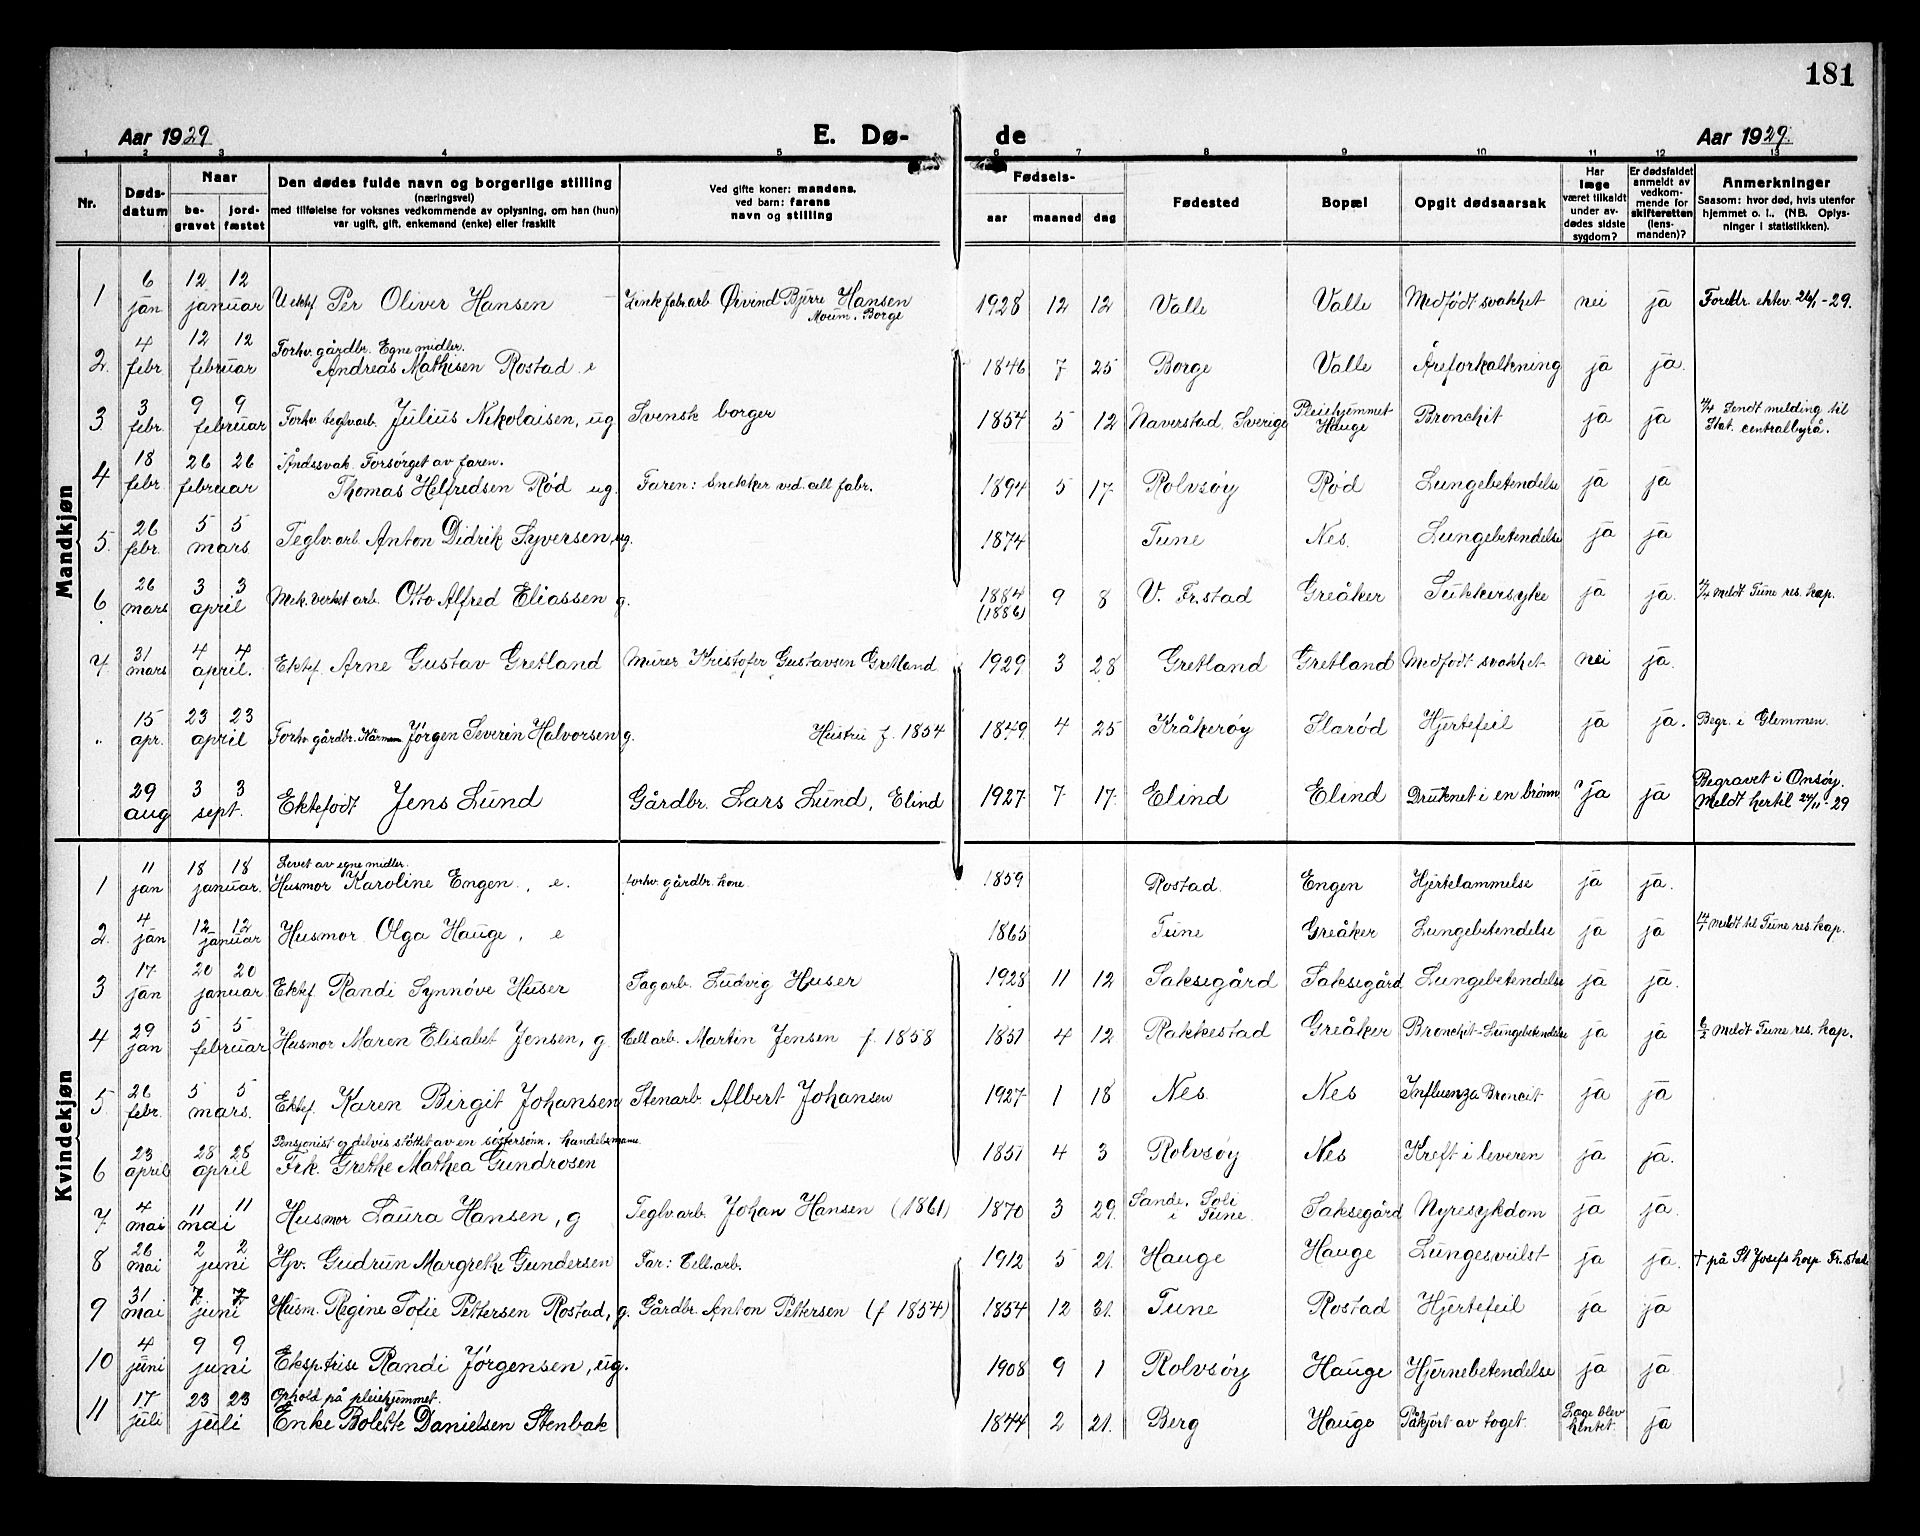 181
Aar 1929 E. Dø- de Aar 1929.
1 2 3 4 5 6 7 8 9 10 11 12 13
Nr. Døds-datum Naar be-gravet jord-fæstet Den dødes fulde navn og borgerlige stilling (næringsvei) med tilføielse for voksnes vedkommende av oplysning, om han (hun) var ugift, gift, enkemand (enke) eller fraskilt Ved gifte koner: mandens, ved barn: farens navn og stilling Fødsels- aar maaned dag Fødested Bopæl Opgit dødsaarsak Har læge været tilkaldt under av-dødes sidste sygdom? Er dødsfaldet anmeldt av vedkom-mende for skifteretten (lens-manden)? Anmerkninger Saasom: hvor død, hvis utenfor hjemmet o. l., (NB. Oplys-ninger i statistikken).
Mandkjøn
1 6 jan 12 12 januar Uektef Per Oliver Hansen Zinkfabr.arb Øivind Bjerre Hansen Moum, Borge 1928 12 12 Valle Valle Medfødt svakhet nei ja Foreldr. ektev. 26/1-29.
2. 4 febr 12 12 februar Forhv. gårdbr. Egne midler. Andreas Mathisen Rostad e 1846 7 25 Borge Valle Åreforkalkning ja ja.
3. 3 febr. 9 9 februar Forhv. teglv.arb. Julius Nikolaisen, ug Svensk borger 1854 5 12 Naverstad, Sverige Pleiehjemmet Hauge Bronchit ja ja 4/4 Sendt melding til Stat. centralbyrå.
4 18 febr. 26 26 februar Åndssvak. Forsørget av faren. Thomas Helfredsen Rød ug. Faren: Snekker ved cell fabr. 1894 5 17. Rolvsøy Rød Lungebetendelse ja ja
5. 26 febr. 5 5 mars Teglv.arb. Anton Didrik Syversen, ug. 1874 Tune Nes. Lungebetendelse ja ja
6. 26 mars 3 3 april Mek. verkst arb. Otto Alfred Eliassen g. 1884 (1886) 9 8 V. Fr.stad Greåker Sukkersyke ja ja. 4/4 meldt Tune res. kap.
7 31 mars 4 4 april. Ektef. Arne Gustav Gretland Murer Kristofer Gustavsen Gretland 1929 3 28 Gretland Gretland Medfødt svakhet nei ja.
" 15 apr. 23 23 april Forhv gårdbr. Kårmann Jørgen Severin Halvorsen g. Hustru f. 1854 1849 4 25 Kråkerøy Slarød Hjertefeil ja ja. Begr. i Glemmen.
29 aug 3 3 sept. Ektefødt Jens Lund Gårdbr. Lars Lund, Elind 1927 7 17. Elind Elind Druknet i en brønn ? ja ja Begravet i Onsøy. Meldt hertil 24/11-29
Kvindekjøn
1 11 jan 18 18 januar. Levet av egne midler. Husmor Karoline Engen, e. forhv. gårdbr. kone 1859 Rostad. Engen Hjertelammelse ja ja.
2. 4 jan 12 12 januar Husmor Olga Hauge, e 1865 Tune Greåker Lungebetendelse ja ja 14/1 meldt til Tune res kap.
3 17 jan 20 20 januar Ektef. Randi Synnøve Huser Sagarb. Ludvig Huser 1928 11 12 Saksegård Saksegård Lungebetendelse ja ja.
4 29 jan 5 5 februar Husmor Maren Elisabet Jensen, g Cell arb. Martin Jensen f. 1858 1851 4 12 Rakkestad Greåker Bronchit-Lungebetendelse ja ja 6/2 meldt Tune res. kap.
5. 26 febr. 5 5 mars. Ektef. Karen Birgit Johansen Stenarb Albert Johansen 1927 1 18 Nes. Nes Influenza Broncit ja ja
6 23 april 28 28 april Pensjonist og delvis støttet av en søstersønn, handelsmann. Frk. Grethe Mathea Gundrosen 1851 4 3 Rolvsøy Nes Kreft i leveren ja ja.
7 4 mai 11 11 mai Husmor Laura Hansen, g Teglv.arb. Johan Hansen (1861) 1870 3 29. Sande, Soli i Tune. Saksegård Nyresykdom ja ja.
8 26 mai 2 2 juni Hjv. Gudrun Margrethe Gundersen Far: Cell.arb. 1912 5 21. Hauge Hauge Lungesvulst ja ja. † på St Josefs hosp Fr.stad
9 31 mai 7 7 juni Husm. Regine Sofie Pettersen Rostad, g. Gårdbr. Anton Pettersen (f 1854) 1854 12 31. Tune Rostad Hjertefeil ja ja
10 4 juni 9 9 juni Eksp.trise Randi Jørgensen, ug. 1908 9 1 Rolvsøy Hauge Hjernebetendelse ja ja
11 17 juli 23 23 juli Ophold på pleiehjemmet. Enke Bolette Danielsen Stenbak 1844 2 21. Berg Hauge Påkjørt av toget. Læge blev hentet. ja